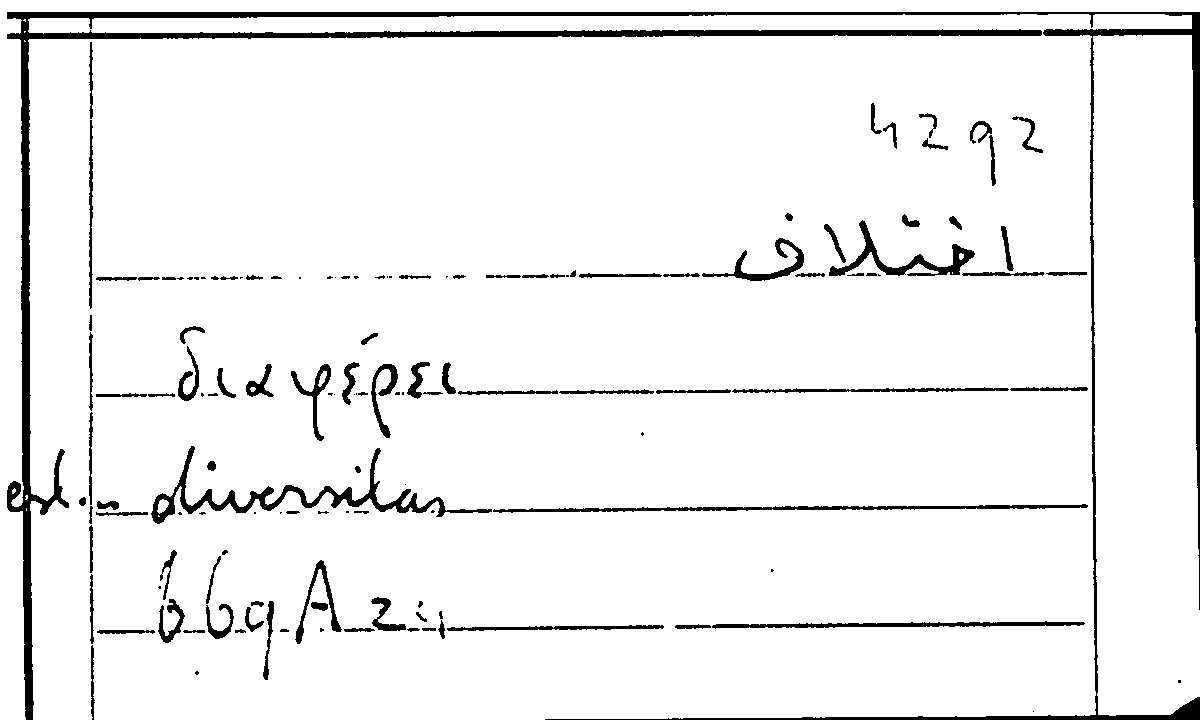 4292
اختلاف
διαφέρει
est.- diversitas
669A24